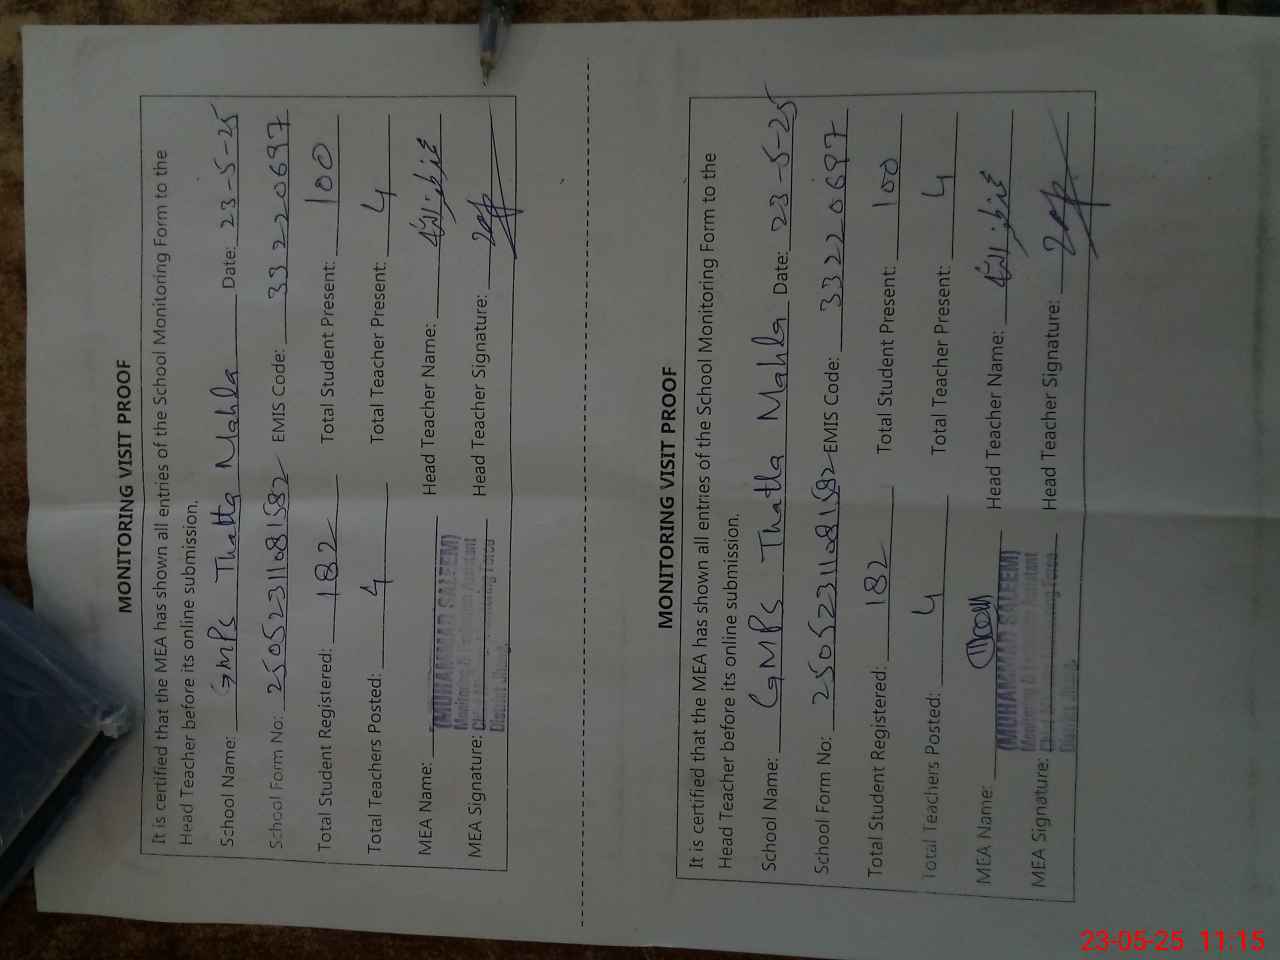 MONITORING VISIT PROOF
It is certified that the MEA has shown all entries of the School Monitoring Form to the
Head Teacher before its online submission.
School Name: GMPS Thatta Mahla Date: 23-5-25
School Form No: 25052311081582 EMIS Code: 33220697
Total Student Registered: 182 Total Student Present: 100
Total Teachers Posted: 4 Total Teacher Present: 4
MEA Name: Head Teacher Name:
(MUHAMMAD SALEEM)
Monitoring & Evaluation Assistant
MEA Signature: Head Teacher Signature:
District Jhang.
MONITORING VISIT PROOF
It is certified that the MEA has shown all entries of the School Monitoring Form to the
Head Teacher before its online submission.
School Name: GMPS Thatta Mahla Date: 23-5-25
School Form No: 25052311081582 EMIS Code: 33220697
Total Student Registered: 182 Total Student Present: 100
Total Teachers Posted: 4 Total Teacher Present: 4
MEA Name: Head Teacher Name:
(MUHAMMAD SALEEM)
Monitoring & Evaluation Assistant
MEA Signature: Head Teacher Signature:
District Jhang.
23-05-25 11:15